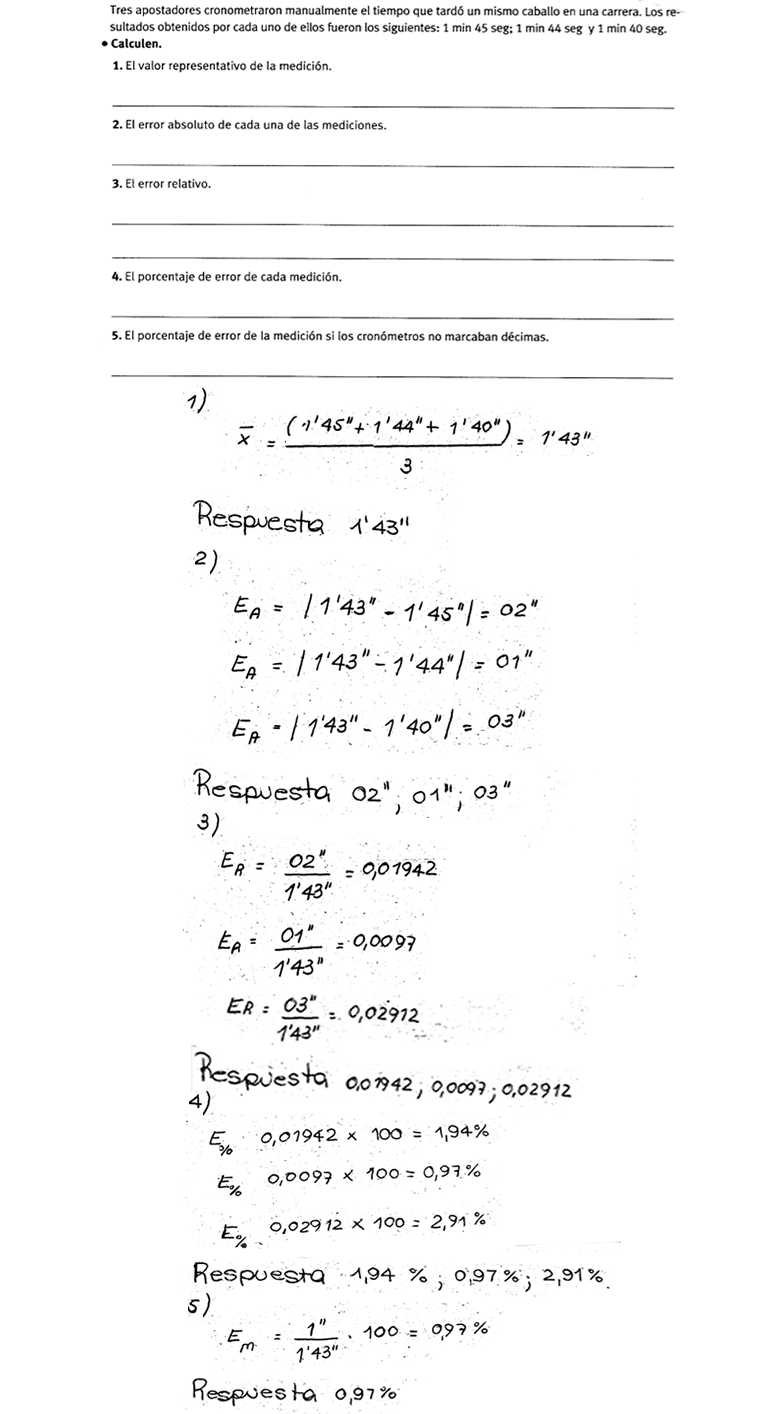 Tres apostadores cronometraron manualmente el tiempo que tardó un mismo caballo en una carrera. Los re-
sultados obtenidos por cada uno de ellos fueron los siguientes: 1 min 45 seg; 1 min 44 seg y 1 min 40 seg.
• Calculen.
1. El valor representativo de la medición.
2. El error absoluto de cada una de las mediciones.
3. El error relativo.
4. El porcentaje de error de cada medición.
5. El porcentaje de error de la medición si los cronómetros no marcaban décimas.
1)
x̄ = (1'45"+ 1'44"+ 1'40") = 1'43"
3
Respuesta 1'43"
2)
E_A = |1'43" - 1'45"| = 02"
E_A = |1'43" - 1'44"| = 01"
E_A = |1'43" - 1'40"| = 03"
Respuesta 02"; 01"; 03"
3)
E_R = 02" = 0,01942
1'43"
E_R = 01" = 0,0097
1'43"
ER = 03" = 0,02912
1'43"
Respuesta 0,01942; 0,0097; 0,02912
4)
E_% 0,01942 x 100 = 1,94%
E_% 0,0097 x 100 = 0,97%
E_% 0,02912 x 100 = 2,91%
Respuesta 1,94 %; 0,97%; 2,91%
5)
E_m = 1" . 100 = 0,97%
1'43"
Respuesta 0,97%